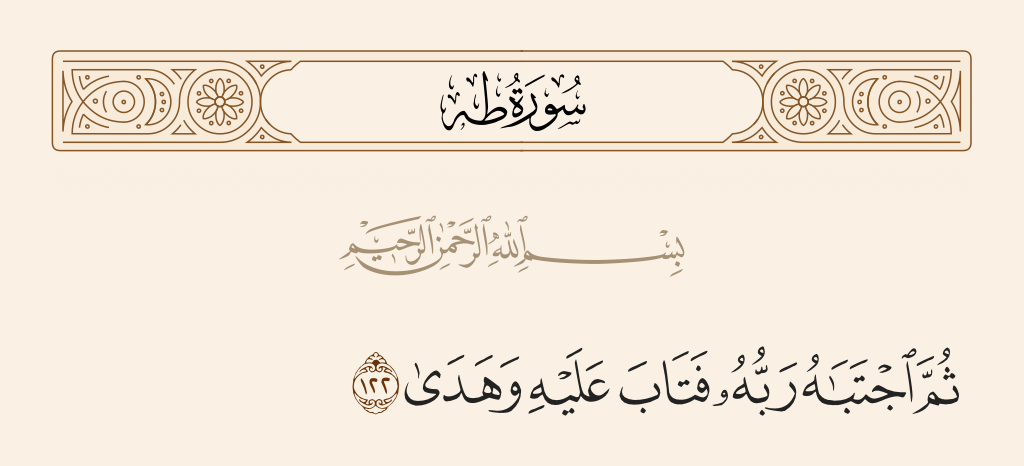 سُورَةُ طه
بِسْمِ ٱللَّهِ ٱلرَّحْمَٰنِ ٱلرَّحِيمِ
ثُمَّ ٱجْتَبَٰهُ رَبُّهُۥ فَتَابَ عَلَيْهِ وَهَدَىٰ ١٢٢